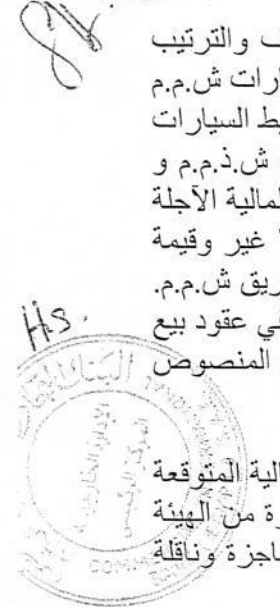 والترتيب
ارات ش.م.م
ط السيارات
ش.ذ.م.م و
مالية الآجلة
غير وقيمة
ريق ش.م.م.
ي عقود بيع
المنصوص
Hs.
الية المتوقعة
رة من الهيئة
اجزة وناقلة